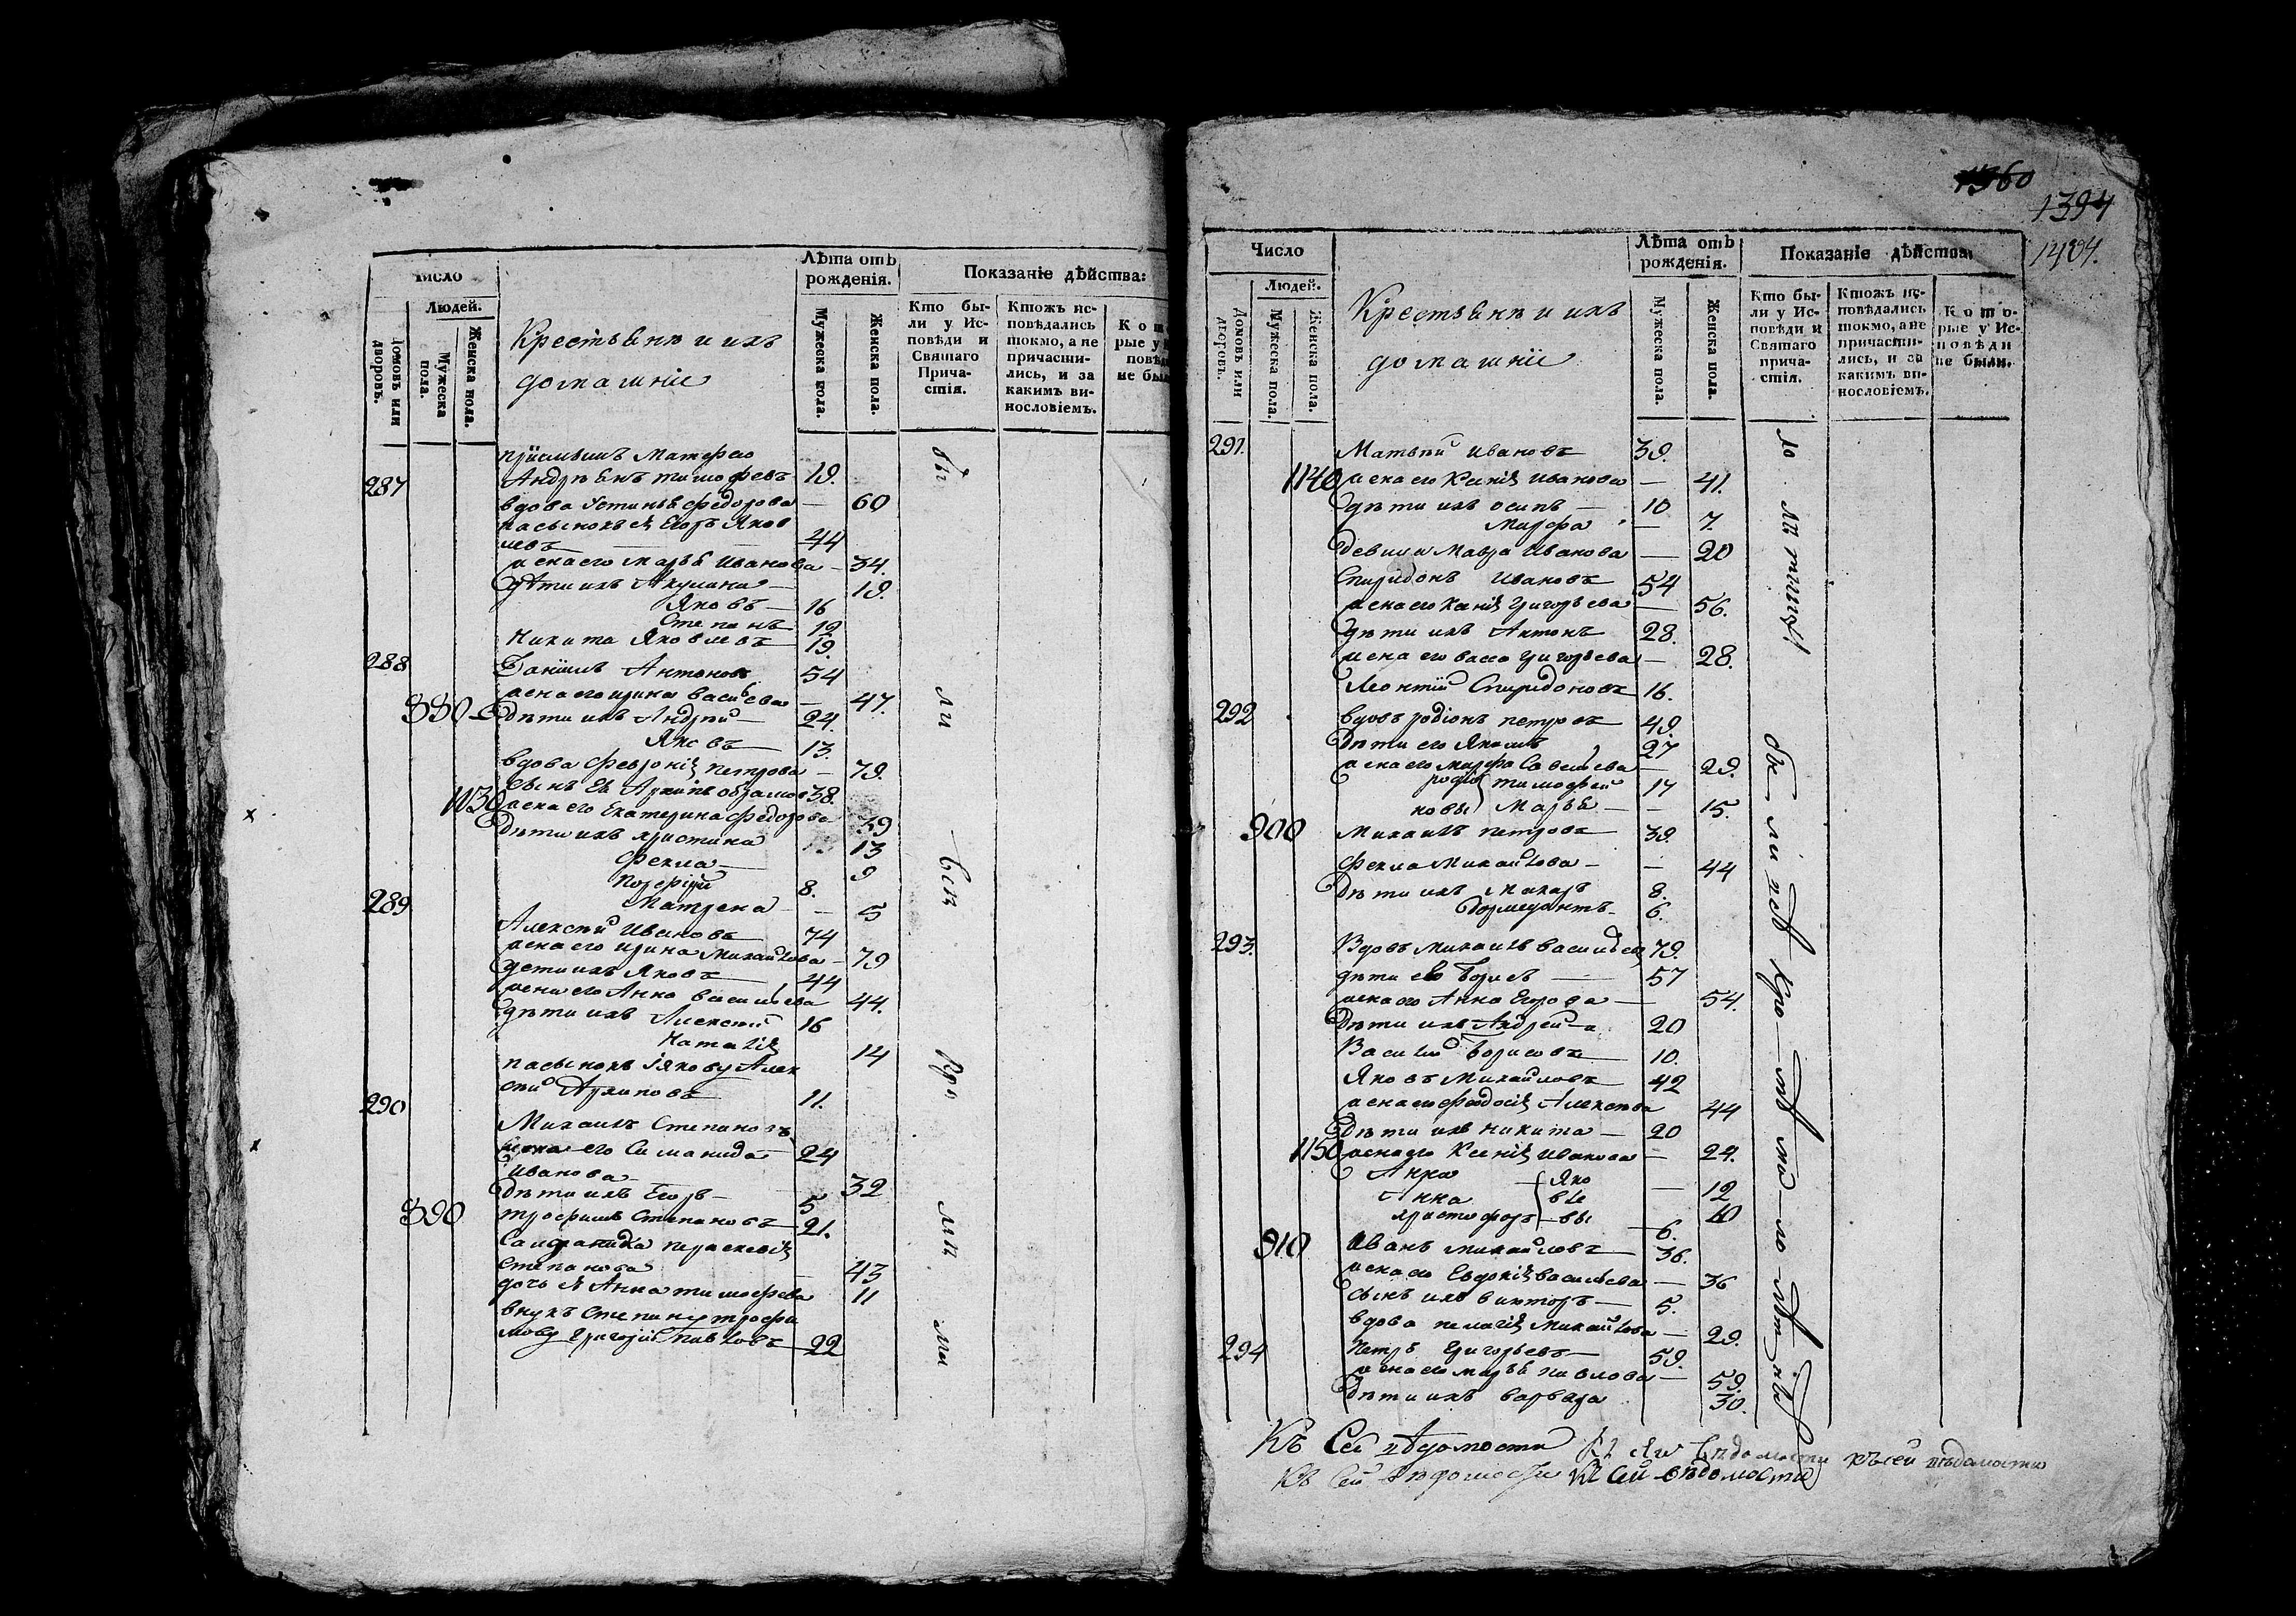 Число
Людей.
Домовъ или дворовъ.
Мужеска пола.
Женска пола.
Крестьяня и ихъ
домашніе
Лѣта отъ
рожденія.
Мужеска пола.
Женска пола.
Показаніе дѣйства:
Кто бы-
ли у Ис-
повѣди и
Святаго
Прича-
стія.
Ктожъ ис-
повѣдались
токмо, а не
причасти-
лись, и за
какимъ ви-
нословіемъ.
пріемышъ Матфею
287 Андреянъ тимофевъ 19.
вдова Устинья федорова — 60
пасынокъ ея Егоръ Яков
левъ 44
жена его марья Иванова — 34.
Дѣти ихъ Акулина — 19.
Яковъ — 16
Степанъ 12
Никита Яковлевъ 19.
288 Даніилъ Антоновъ 54
жена его ирина васильева — 47.
880 Дѣти ихъ Андрей — 24.
Яковъ 13.
вдова Феврониія петрова — 79.
сынъ Ея Архипъ абрамов 38.
1130 жена его Екатерина федорова 39
Дѣти ихъ христина 13
Фекла — 9
Порфирій 8.
289 Матрена — 5
Алексей Ивановъ 74
жена его ирина Михайлова — 79
дети ихъ Яковъ 44
жена его Анна васильева 44.
дѣти ихъ Алексей 16
Наталія 14
пасынокъ іякову Алек
сей Архиповъ 11.
290
Михаилъ Степановъ 24
жена его Саламанида
Иванова 32
Дѣти ихъ Егоръ — 5
890 трофимъ Степановъ 21.
параскевія
Степанова — 43
дочь ея Анна тимофева 11
внукъ Степану трофи
мову Григорій Павловъ 22
1360
1394
1404.
Число
Людей.
Домовъ или дворовъ.
Мужеска пола.
Женска пола.
Крестьяня и ихъ
домашніе
Лѣта отъ
рожденія.
Мужеска пола.
Женска пола.
Показаніе дѣйства:
Кто бы-
ли у Ис-
повѣди и
Святаго
прича-
стія.
Ктожъ ис-
повѣдались
токмо, а не
причасти-
лись, и за
какимъ ви-
нословіемъ.
Кото-
рые у Ис-
повѣди
не были.
291. Матвей Ивановъ 39.
1140 жена его Ксенія Иванова — 41.
Дѣти ихъ осипъ — 10
Марфа — 7.
девица Мавра Иванова — 20
Спиридонъ Ивановъ 54
жена его Григорьева — 56.
Дѣти ихъ Антонъ 28.
жена его васса Григорьева — 28.
Леонтій Спиридоновъ 16.
292 вдовъ родіонъ петровъ 49.
Дѣти его Якимъ 27
жена его марфа Савельева — 29.
родіо тимофей 17
новы Марья — 15.
900 Михаилъ петровъ 39.
Фекла Михайлова — 44
Дѣти ихъ Макаръ 8.
Дормедонтъ 6.
293. Вдовъ Михаилъ васильев 79.
дѣти его Борисъ — 57
жена его Анна Егорова — 54.
Дѣти ихъ Андрей 20
Василій Борисовъ 10.
Яковъ Михайловъ 42
жена его Феодосія Алексева 44
Дѣти ихъ Никита — 20
1150 жена его Ксенія Иванова — 24.
Анна Яко — 12
Анна вле 10
христофоръ вы 6.
910 Иванъ михайловъ 36.
жена его Евдокія васильева — 36
сынъ ихъ викторъ — 5.
вдова пелагія Михайлова — 29.
294 Петръ Григорьевъ 59.
жена его марья павлова — 59.
Дѣти ихъ варвара 30.
Къ Сей вѣдомости
къ сей вѣдомости
Къ Сей вѣдомости Къ Сей вѣдомости